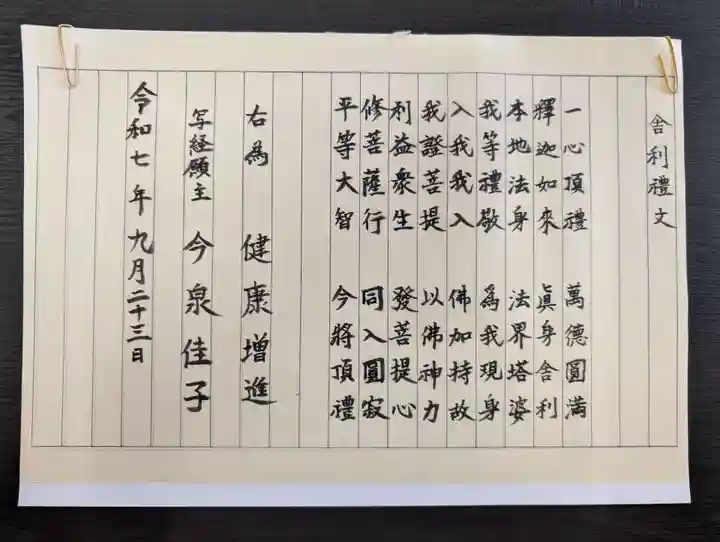 舎利禮文
一心頂禮 萬德圓満
釋迦如來 眞身舎利
本地法身 法界塔婆
我等禮敬 為我現身
入我我入 佛加持故
我證菩提 以佛神力
利益衆生 發菩提心
修菩薩行 同入圓寂
平等大智 今將頂禮
右為 健康増進
写経願主 今泉佳子
令和七年九月二十三日